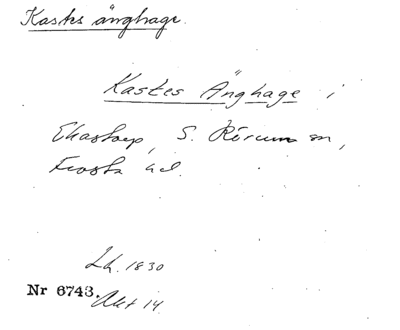 Kastes änghage.
Kastes Änghage i
Ekastorp, S. Rörum sn,
Frosta hd.
Lh. 1830
Nr 6743. Akt 14.